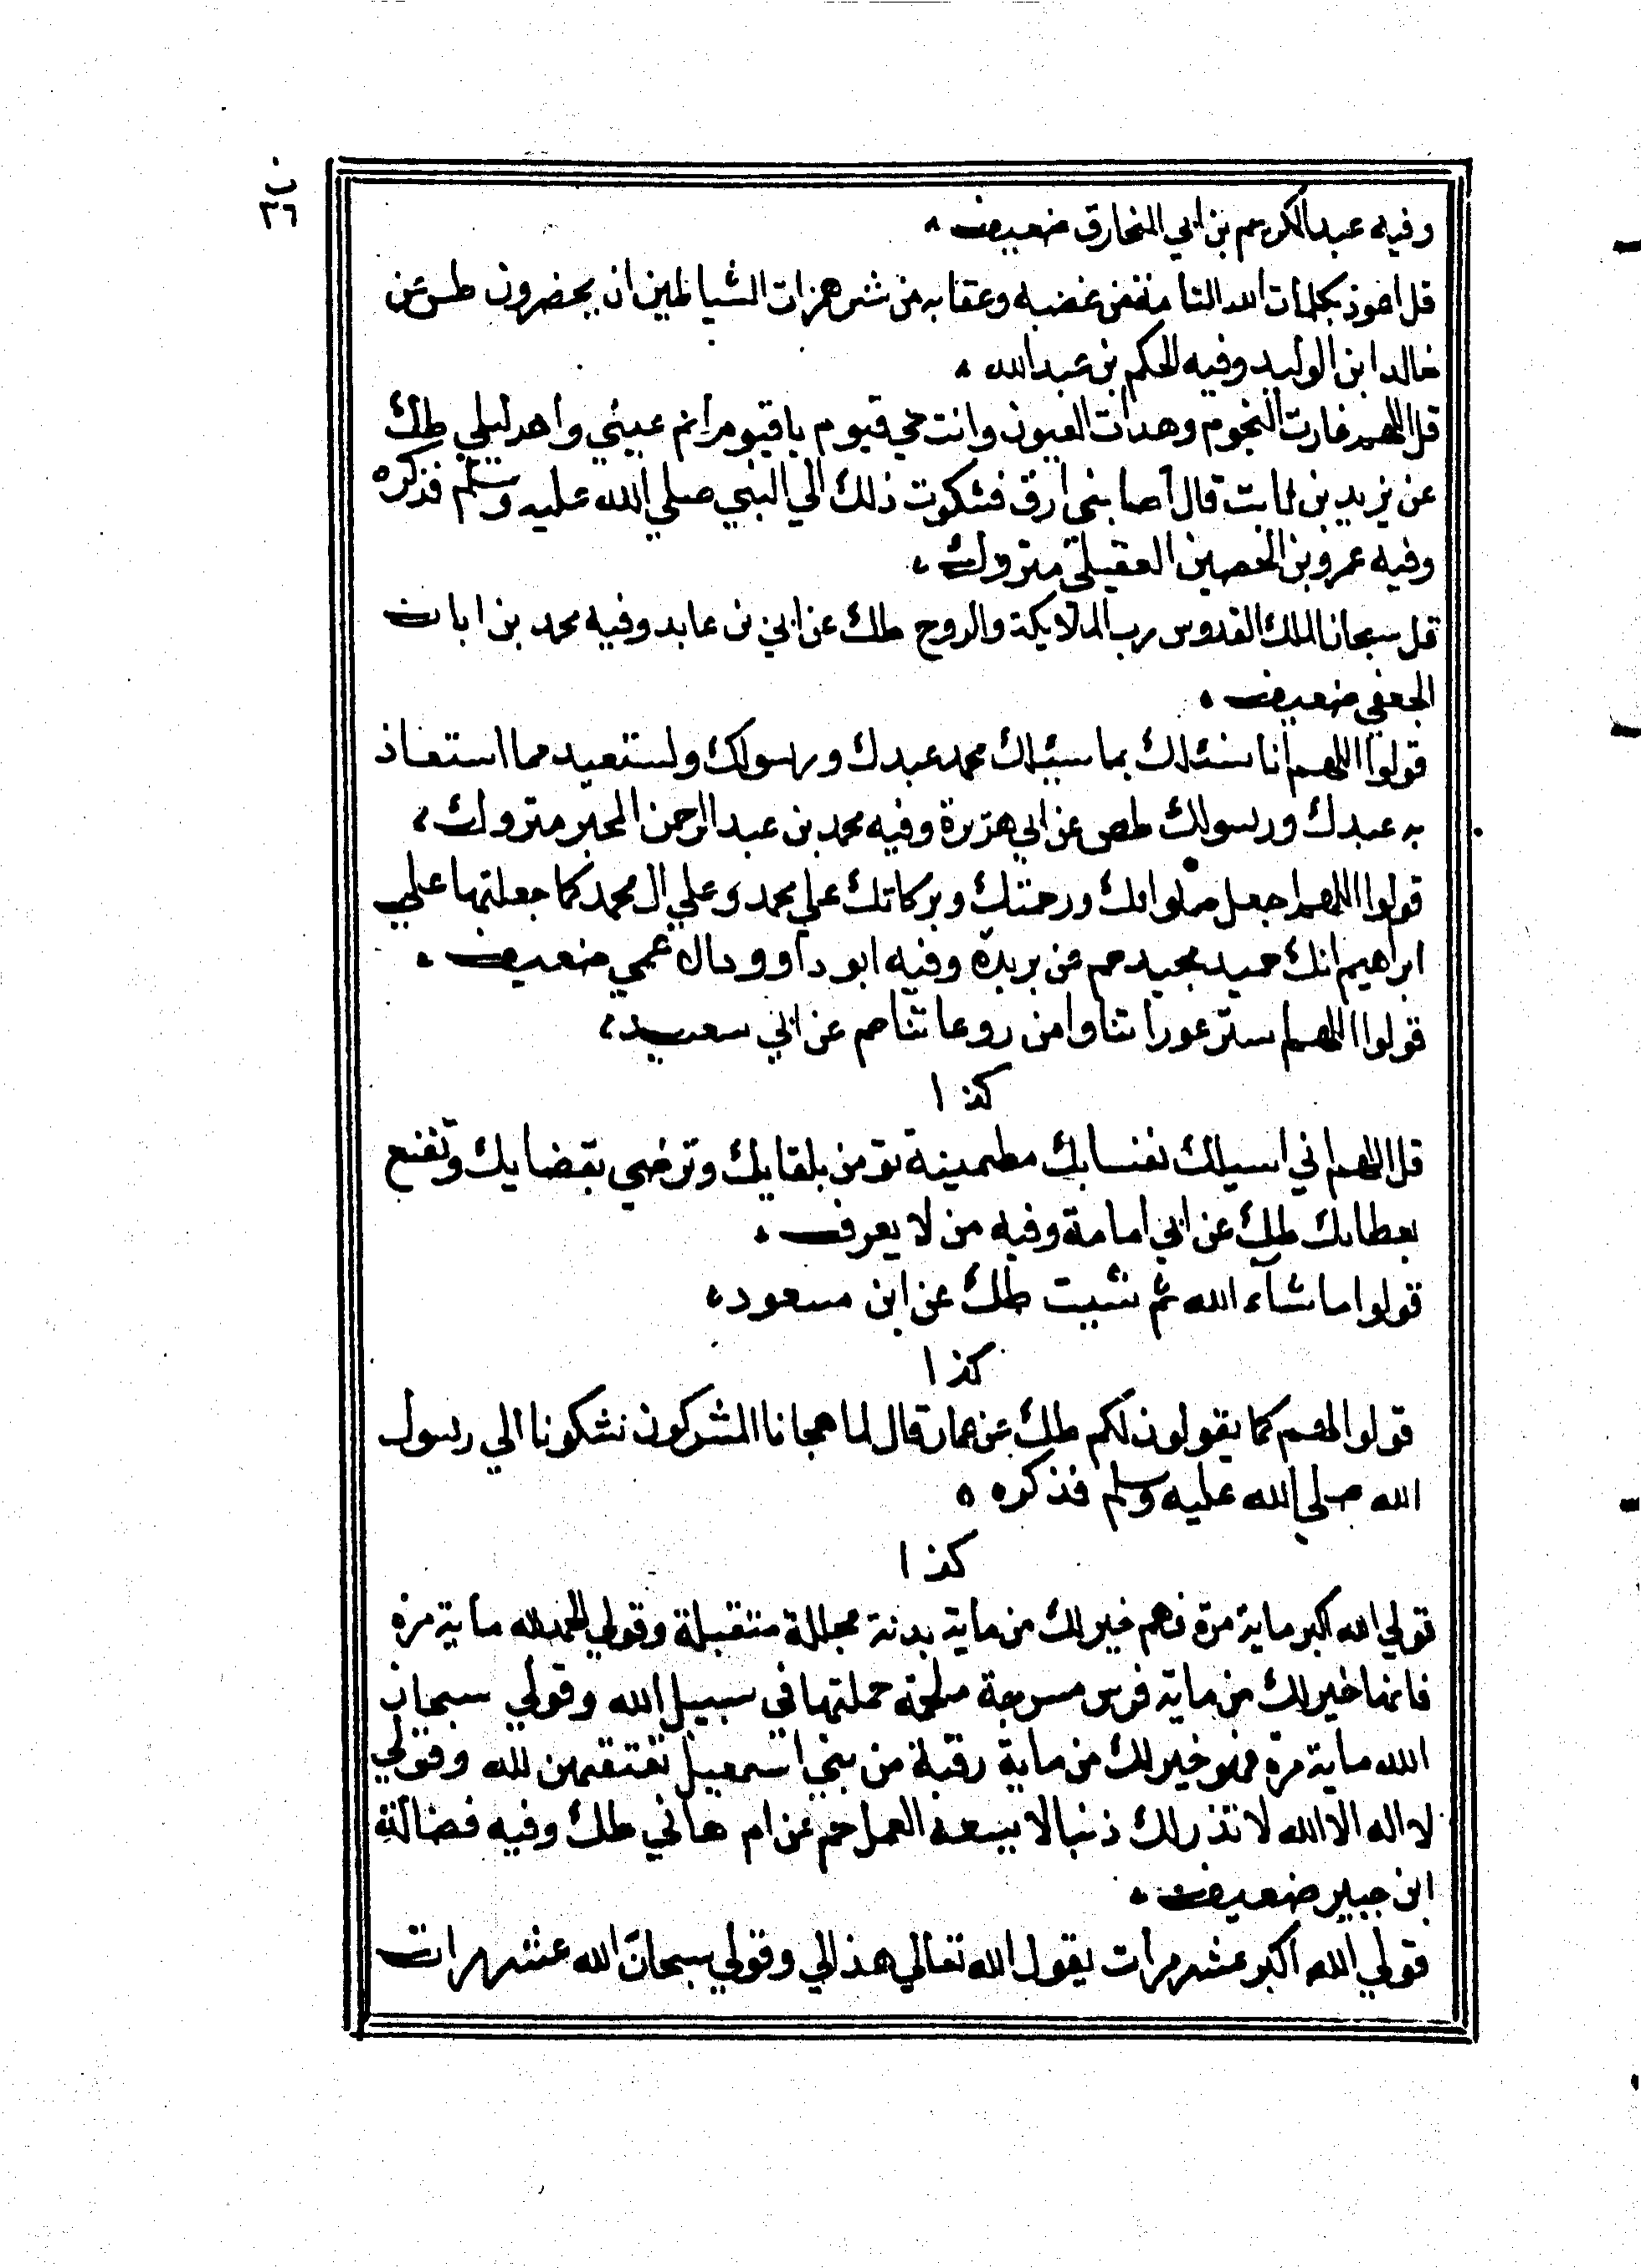 ب
٣٦
وفيه عبد الكريم بن ابي المخارق ضعيف
قل اعوذ بكلمات الله التامة من غضبه وعقابه من شر همزات الشياطين ان يحضرون طس عن
خالد ابن الوليد وفيه الحكم بن عبد الله
قل اللهم غارت النجوم وهدات العيون وانت حي قيوم ياقيوم انم عيني واهد ليلي طك
عن يزيد بن ثابت قال اصابني ارق فشكوت ذلك الي النبي صلي الله عليه وسلم فذكره
وفيه عمرو بن الحصين العقيلي متروك
قل سبحان الملك القدوس رب الملايكة والروح طك عن ابي بن عابد وفيه محمد بن ابان
الجعفي ضعيف
قولوا اللهم انا نسئلك بما سئلك محمد عبدك ورسولك ونستعيذ مما استعاذ
به عبدك ورسولك طص عن ابي هريرة وفيه محمد بن عبد الرحمن المحبر متروك
قولوا اللهم اجعل صلواتك ورحمتك وبركاتك علي محمد وعلي ال محمد كما جعلتها علي
ابراهيم انك حميد مجيد حم عن بريدة وفيه ابو داوود الاعمي ضعيف
قولوا اللهم استر عوراتنا وامن روعاتنا حم عن ابي سعيد
كذا
قل اللهم اني اسيلك نفسا بك مطمينة تومن بلقايك وترضي بقضايك وتقنع
بعطايك طك عن ابي امامة وفيه من لا يعرف
قولوا ما شاء الله ثم شيت طك عن ابن مسعود
كذا
قولوا لهم كما يقولون لكم طك عن عمار قال لما هجانا المشركون شكونا الي رسول
الله صلي الله عليه وسلم فذكره
كذا
قولي الله اكبر ماية مرة فهم خير لك من ماية بدنة مجللة متقبلة وقولي الحمد لله ماية مرة
فانها خير لك من ماية فرس مسرجة ملجمة حملتها في سبيل الله وقولي سبحان
الله ماية مرة فهو خير لك من ماية رقبة من بني اسمعيل تعتقهن لله وقولي
لا اله الا الله لا تذر لك ذنبا لا يسعه العمل حم عن ام هاني طك وفيه فضالة
ابن جبير ضعيف
قولي الله اكبر عشر مرات يقول الله تعالي هذا لي وقولي سبحان الله عشر مرات